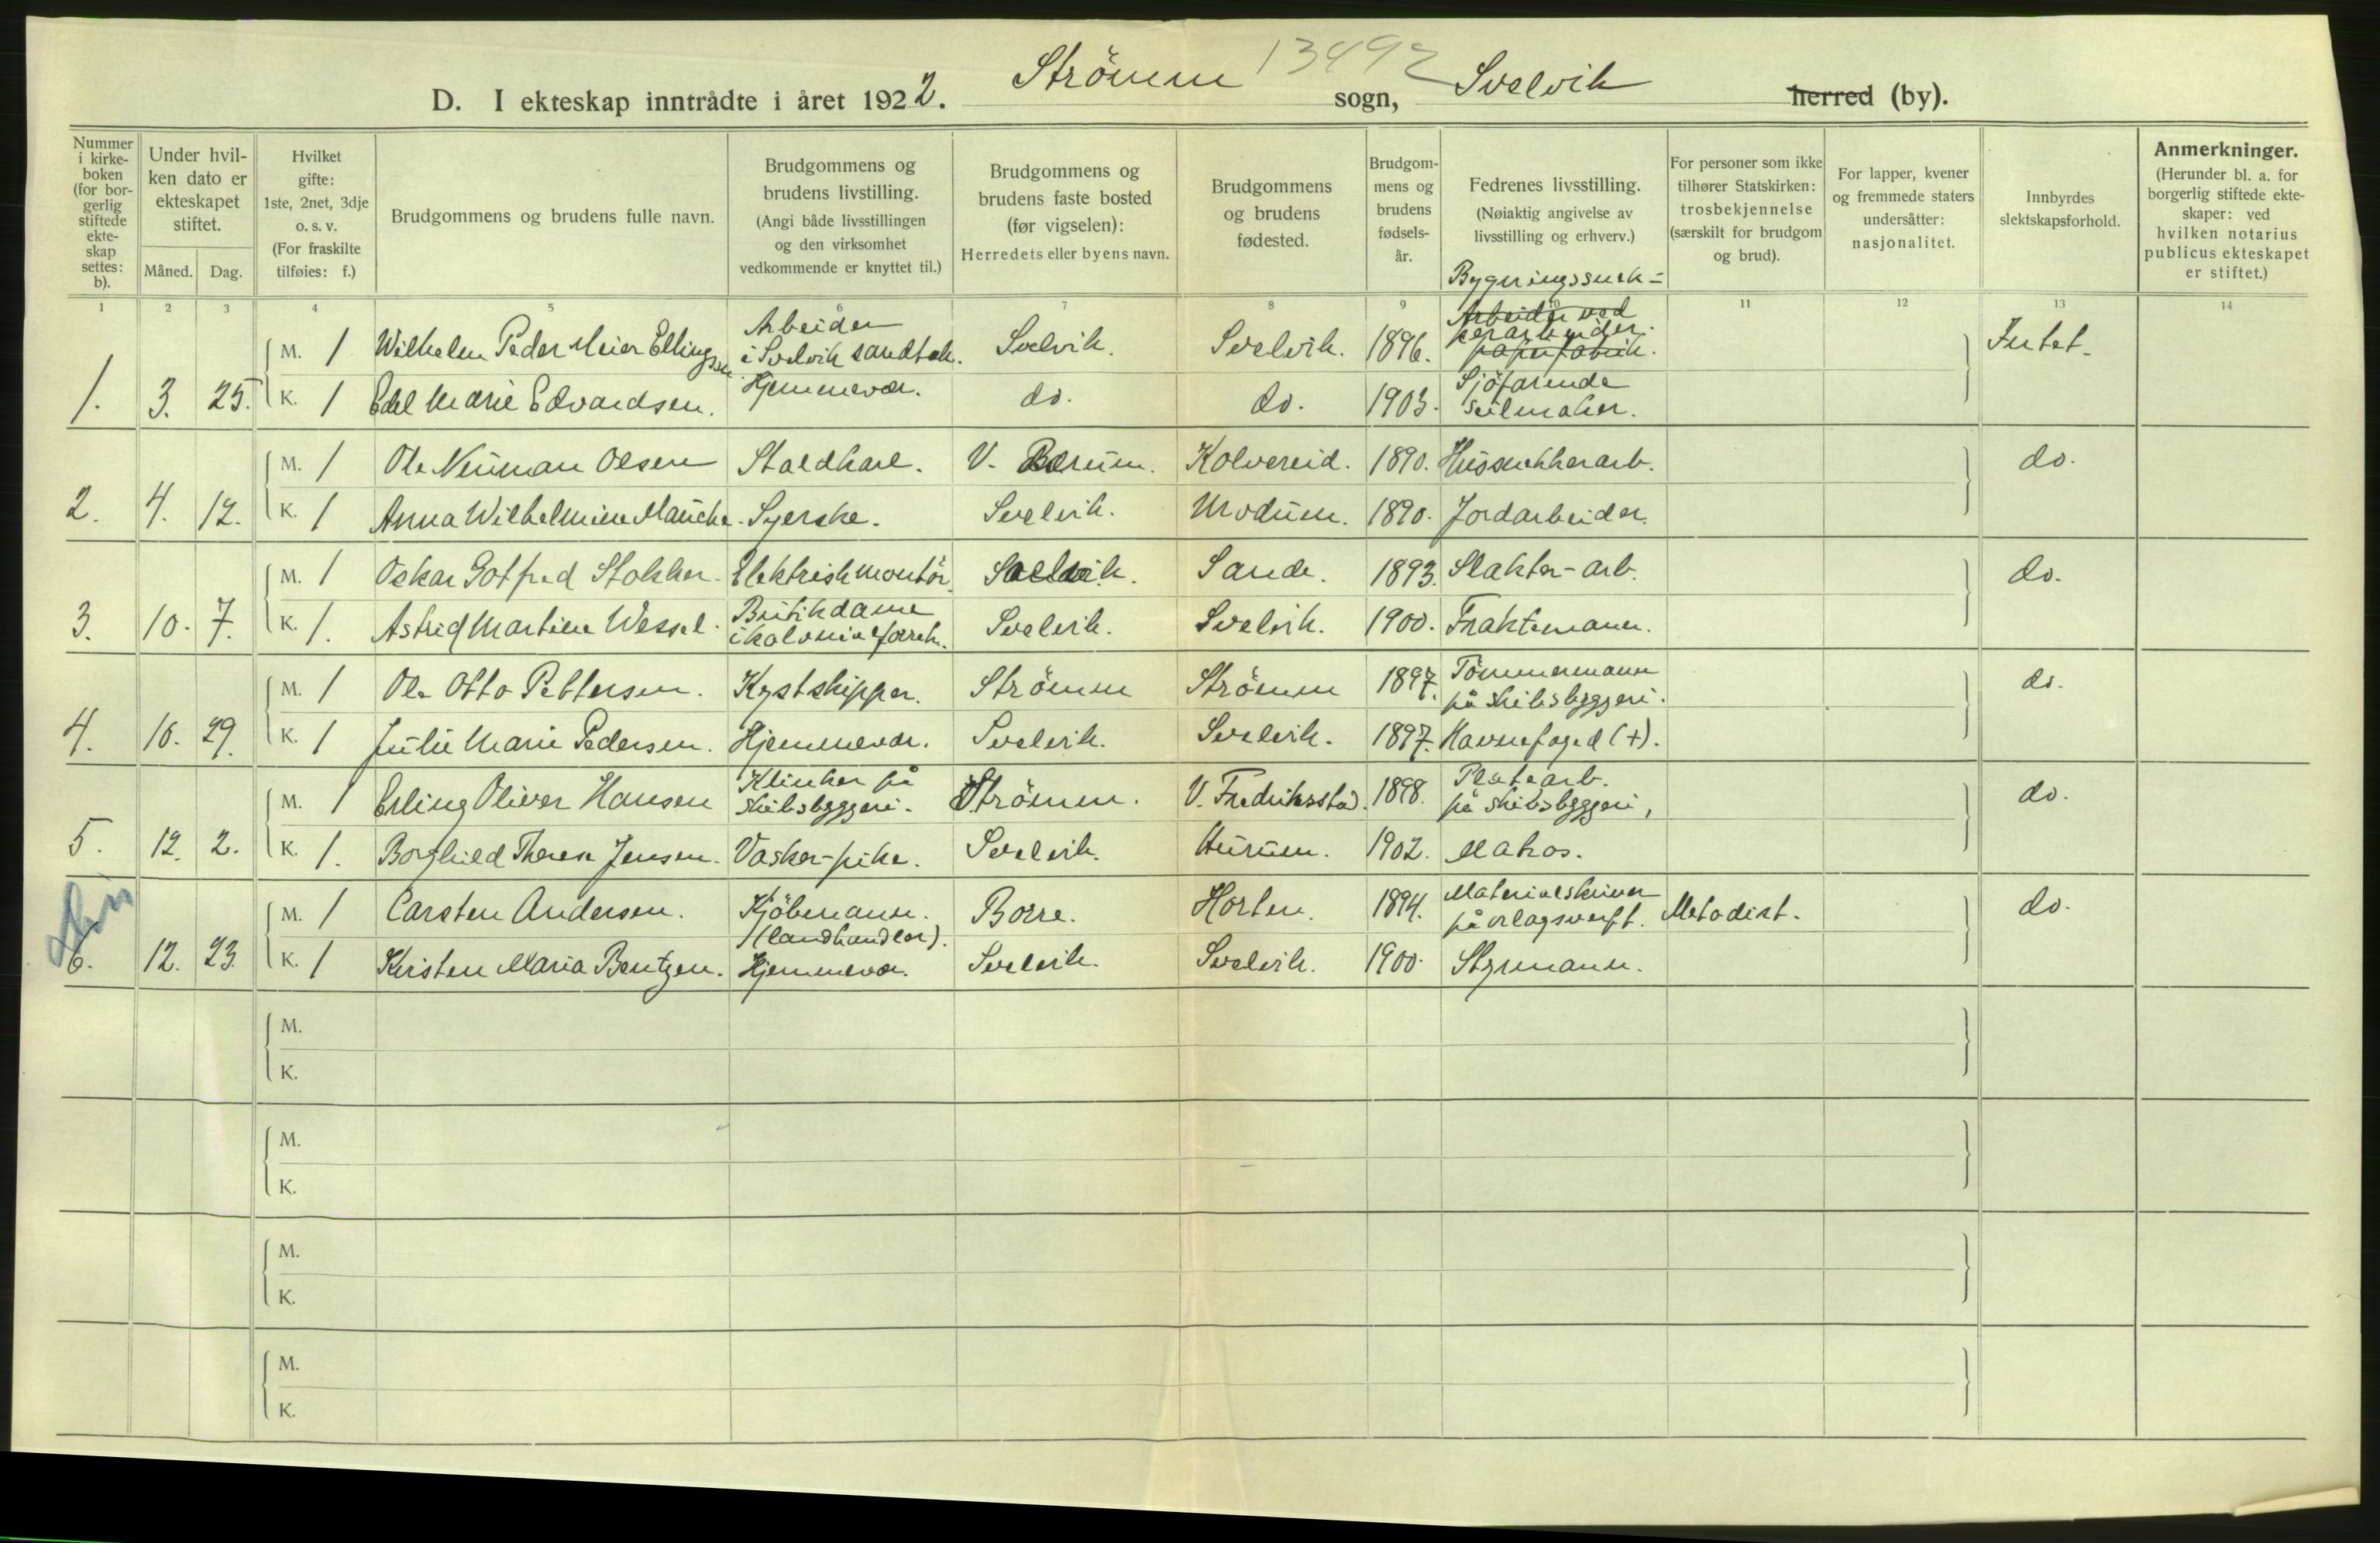 13492
D. I ekteskap inntrådte i året 1922. Strömm sogn, Svelvik herred (by).
Nummer i kirkeboken (for borgerlig stiftede ekteskap settes: b).
Under hvilken dato er ekteskapet stiftet.
Måned. Dag.
Hvilket gifte: 1ste, 2net, 3dje o. s. v. (For fraskilte tilføies: f.)
Brudgommens og brudens fulle navn.
Brudgommens og brudens livstilling. (Angi både livsstillingen og den virksomhet vedkommende er knyttet til.)
Brudgommens og brudens faste bosted (før vigselen): Herredets eller byens navn.
Brudgommens og brudens fødested.
Brudgommens og brudens fødselsår.
Fedrenes livsstilling. (Nøiaktig angivelse av livsstilling og erhverv.)
For personer som ikke tilhører Statskirken: trosbekjennelse (særskilt for brudgom og brud).
For lapper, kvener og fremmede staters undersåtter: nasjonalitet.
Innbyrdes slektskapsforhold.
Anmerkninger. (Herunder bl. a. for borgerlig stiftede ekteskaper: ved hvilken notarius publicus ekteskapet er stiftet.)
1 2 3 4 5 6 7 8 9 10 11 12 13 14
M. 1 Wilhelm Peder Meier Ellingsen Arbeider i Svelvik sandtak. Svelvik. Svelvik. 1896. Arbeider ved papirfabrik. Intet.
1. 3. 25. K. 1 Edel Marie Edvardsen. Hjemmevær. do. do. 1903. Sjöfarende seilmaker.
M. 1 Ole Neuman Olsen Staldkarl. V. Bærum. Kolvereid. 1890. do.
2. 4. 12. K. 1 Anna Wilhelmine Syerske. Svelvik. Modum. 1890. Jordarbeider.
M. 1 Oskar Gotfred Stokker. Elektrisk montör. Svelvik. Sande. 1893. Slakter-arb. do.
3. 10. 7. K. 1. Astrid Martine Wessel. Butikdame i kolonialforretn. Svelvik. Svelvik. 1900. Fraktemann.
M. 1 Ole Otto Pettersen. Kystskipper. Strömm Strömm 1897. Tömmermann på skibsbyggeri. do.
4. 10. 29. K. 1 Julie Marie Pedersen. Hjemmevær. Svelvik. Svelvik. 1897. Havnefoged (+).
M. 1 Erling Oliver Hansen Klinker på skibsbyggeri. Strömm. V. Fredriksstad. 1898. Platearb. på skibsbyggeri, do.
5. 12. 2. K. 1. Borghild Therese Jensen. Vasker-pike. Svelvik. Hurum. 1902. Matros.
M. 1 Carsten Andersen. Kjöbmann. (landhandler). Borre. Horten. 1894. Materialskriver på orlogsverft. Metodist. do.
6. 12. 23. K. 1 Kirsten Maria Bentzen. Hjemmevær. Svelvik. Svelvik. 1900. Styrmann.
M.
K.
M.
K.
M.
K.
M.
K.